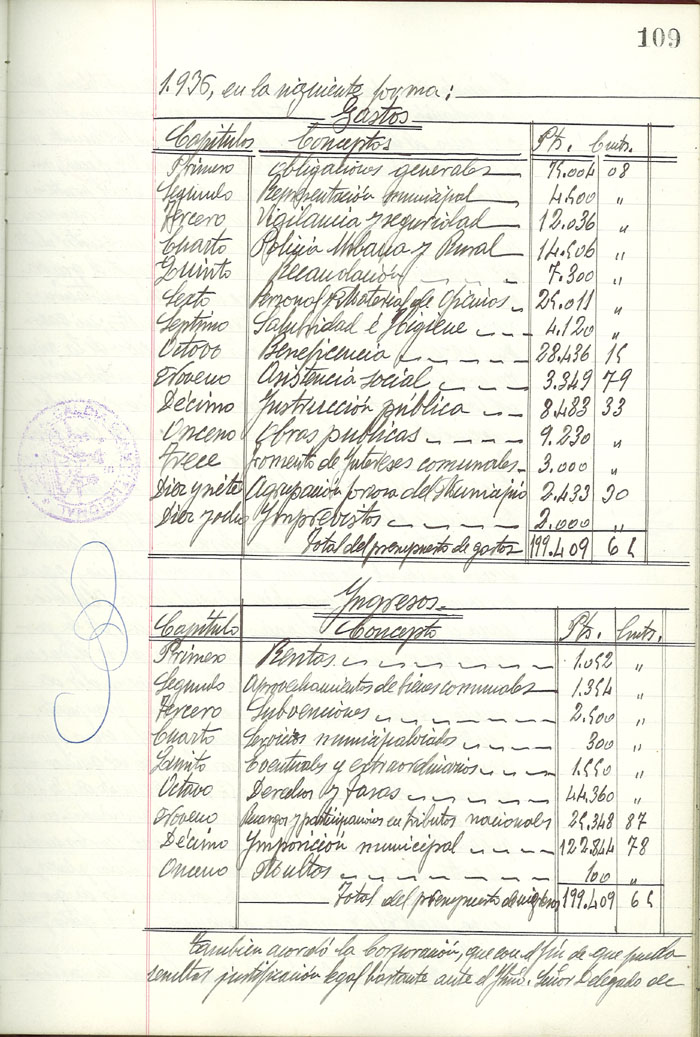 109
1.936, en la siguiente forma:
Gastos
Capítulos Conceptos Pts. Cnts.
Primero Obligaciones generales 75.004 08
Segundo Representación municipal 4.500 "
Tercero Vigilancia y seguridad 12.036 "
Cuarto Policía Urbana y Rural 14.506 "
Quinto Recaudación 7.300 "
Sexto Personal y Material de Oficinas 25.011 "
Septimo Salubridad é Higiene 4.120 "
Octavo Beneficencia 28.436 15
Noveno Asistencia social 3.349 79
Décimo Instrucción pública 8.483 33
Onceno Obras publicas 9.230 "
Trece Fomento de Intereses comunales 3.000 "
Diez y siete Agrupación forzosa del Municipio 2.433 30
Diez y ocho Imprevistos 2.000 "
Total del presupuesto de gastos 199.409 65
Ingresos.
Capítulo Concepto Pts. Cnts.
Primero Rentas 1.052 "
Segundo Aprovechamientos de bienes comunales 1.354 "
Tercero Subvenciones 2.500 "
Cuarto Servicios municipalizados 300 "
Quinto Eventuales y extraordinarios 1.550 "
Octavo Derechos y tasas 44.360 "
Noveno Recargos y participaciones en tributos nacionales 25.348 87
Décimo Imposición municipal 122.844 78
Onceno Multas 100 "
Total del presupuesto de ingresos 199.409 65
También acordó la Corporación, que con el fin de que pueda
resultar justificación legal bastante ante el Iltmo. Señor Delegado de